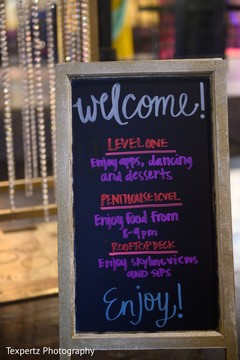 welcome!
LEVEL ONE
Enjoy apps, dancing
and desserts
PENTHOUSE LEVEL
Enjoy Food From
8-9pm
ROOFTOP DECK
Enjoy skyline views
AND SIPS
Enjoy!
Texpertz Photography